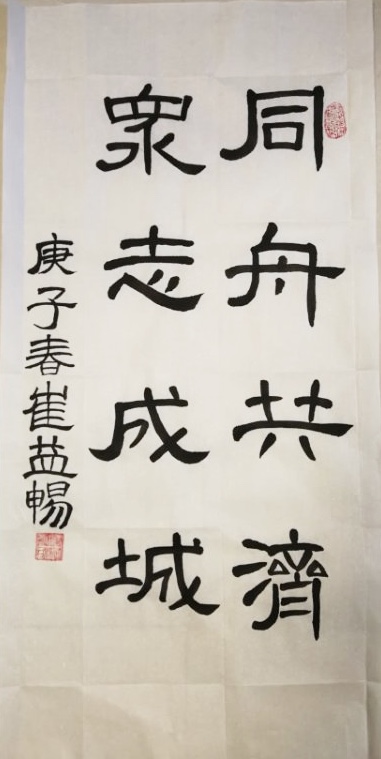 同舟共濟
衆志成城
庚子春崔益暢